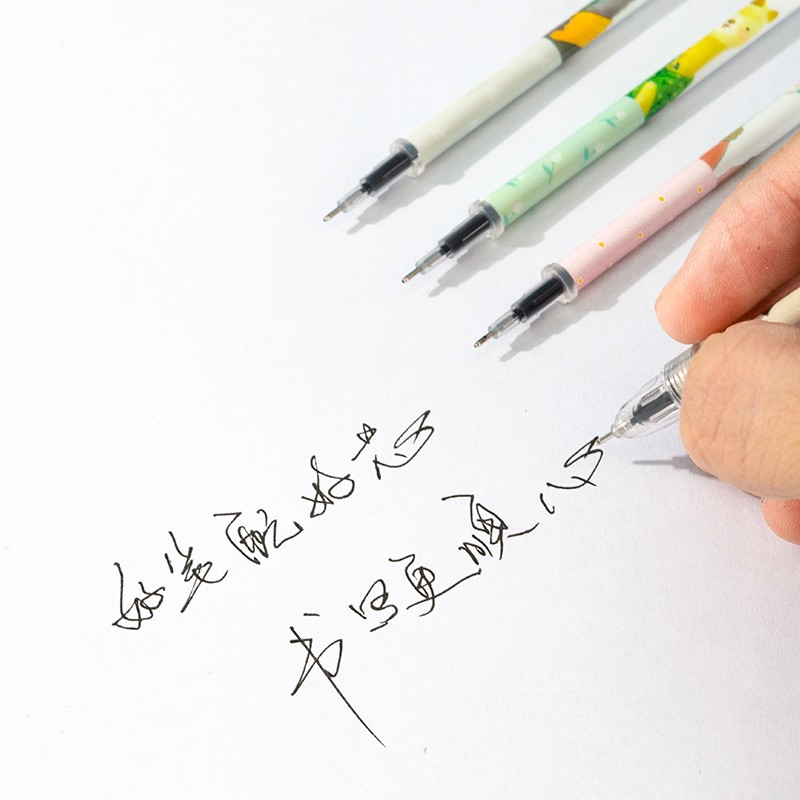 好笔配好芯
书写更顺心